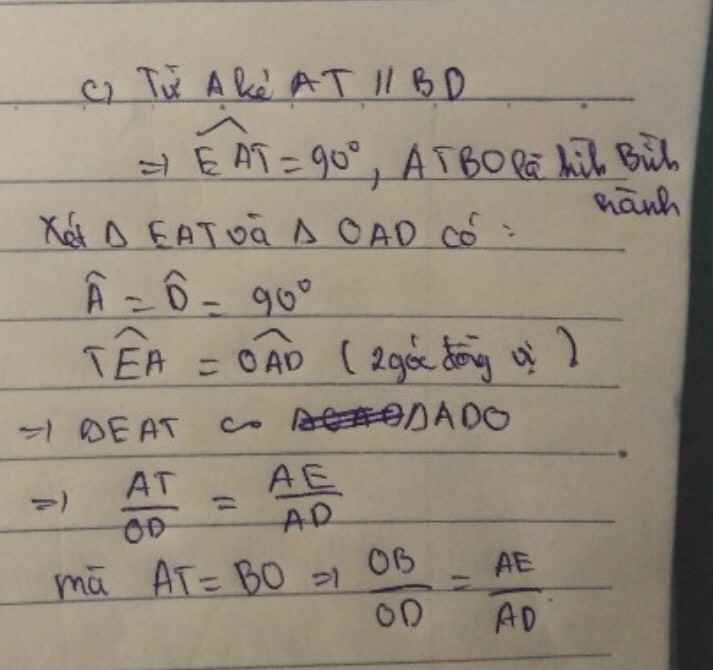 c) Từ A kẻ AT // BD
=> \widehat{EAT} = 90°, ATBO là hình Bình
hành
Xét Δ EAT và Δ OAD có :
\hat{A} = \hat{D} = 90°
\widehat{TEA} = \widehat{OAD} ( 2 góc đồng vị )
=> ΔEAT ∽ ΔADO
=> \frac{AT}{OD} = \frac{AE}{AD}
mà AT = BO => \frac{OB}{OD} = \frac{AE}{AD}.